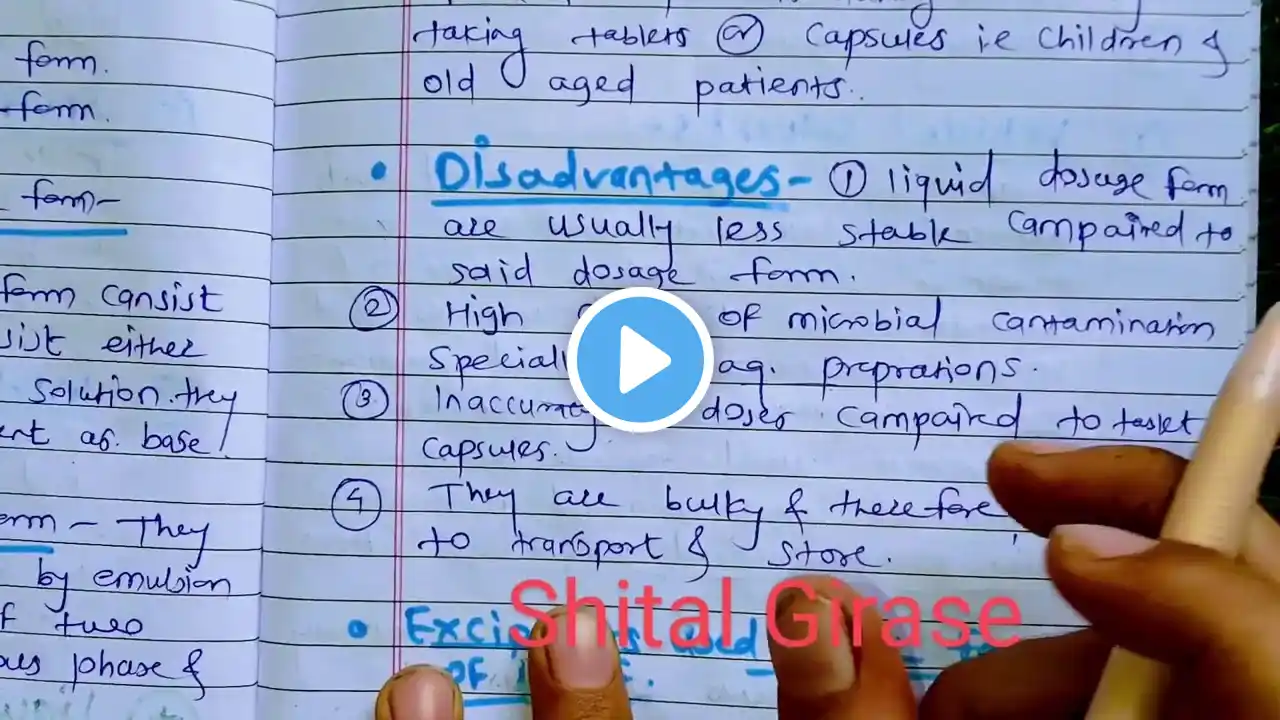 form.
form.
form-
form cansist
sist either
solution. they
ent as. base
form - They
by emulsion
of two
ous phase &
taking tablets or capsules i.e children &
old aged patients.
• Disadvantages- ① liquid dosage form
are usually less stable campaired to
soid dosage form.
② High of microbial contamination
Speciall aq. preprations.
③ Inaccuracy doses campaired to taslet
capsules.
④ They are bulky & therefore
to transport & store.
• used
OF
Shital Girase